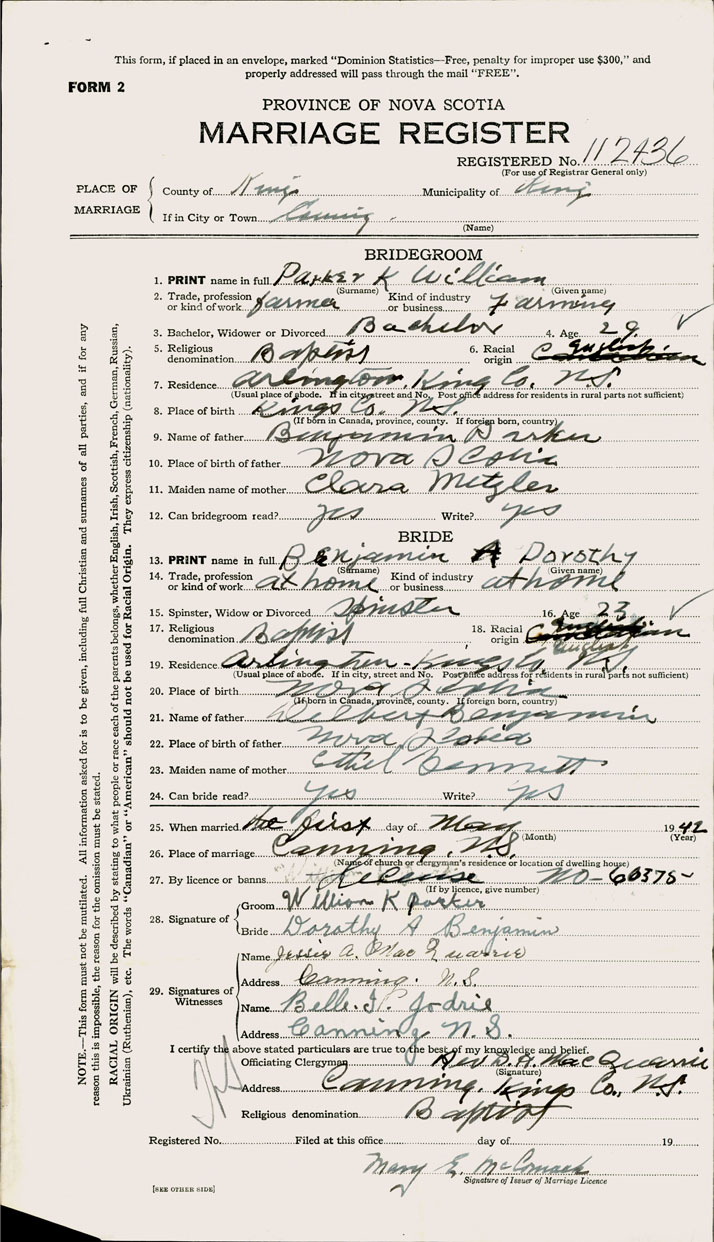 This form, if placed in an envelope, marked "Dominion Statistics—Free, penalty for improper use $300," and
properly addressed will pass through the mail "FREE".
FORM 2
PROVINCE OF NOVA SCOTIA
MARRIAGE REGISTER
REGISTERED No. 112436
(For use of Registrar General only)
PLACE OF MARRIAGE
County of Kings Municipality of Kings
If in City or Town Canning
(Name)
BRIDEGROOM
1. PRINT name in full Parker K William
(Surname) (Given name)
2. Trade, profession or kind of work farmer Kind of industry or business Farming
3. Bachelor, Widower or Divorced Bachelor 4. Age 29
5. Religious denomination Baptist 6. Racial origin English
7. Residence Arlington, King Co. N.S.
(Usual place of abode. If in city street and No. Post office address for residents in rural parts not sufficient)
8. Place of birth Kings Co. N.S.
(If born in Canada, province, county. If foreign born, country)
9. Name of father Benjamin Parker
10. Place of birth of father Nova Scotia
11. Maiden name of mother Clara Metzler
12. Can bridegroom read? yes Write? yes
BRIDE
13. PRINT name in full Benjamin A Dorothy
(Surname) (Given name)
14. Trade, profession or kind of work at home Kind of industry or business at home
15. Spinster, Widow or Divorced Spinster 16. Age 23
17. Religious denomination Baptist 18. Racial origin English
19. Residence Arlington - Kings Co. N.S.
(Usual place of abode. If in city, street and No. Post office address for residents in rural parts not sufficient)
20. Place of birth Nova Scotia
(If born in Canada, province, county. If foreign born, country)
21. Name of father Delbert Benjamin
22. Place of birth of father Nova Scotia
23. Maiden name of mother Ethel Bennett
24. Can bride read? yes Write? yes
25. When married the first day of May 1942
(Month) (Year)
26. Place of marriage Canning, N.S.
(Name of church or clergyman's residence or location of dwelling house)
27. By licence or banns License No-60375-
(If by licence, give number)
28. Signature of
Groom William K Parker
Bride Dorothy A Benjamin
29. Signatures of Witnesses
Name Jessie A. MacQuarrie
Address Canning. N.S.
Name Belle H. Jodrie
Address Canning N.S.
I certify the above stated particulars are true to the best of my knowledge and belief.
Officiating Clergyman Rev D.A. MacQuarrie
(Signature)
Address Canning, Kings Co., N.S.
Religious denomination Baptist
Registered No. Filed at this office day of 19
Mary E. McCormack
Signature of Issuer of Marriage Licence
[SEE OTHER SIDE]
NOTE.—This form must not be mutilated. All information asked for is to be given, including full Christian and surnames of all parties, and if for any
reason this is impossible, the reason for the omission must be stated.
RACIAL ORIGIN will be described by stating to what people or race each of the parents belongs, whether English, Irish, Scottish, French, German, Russian,
Ukrainian (Ruthenian), etc. The words "Canadian" or "American" should not be used for Racial Origin. They express citizenship (nationality).